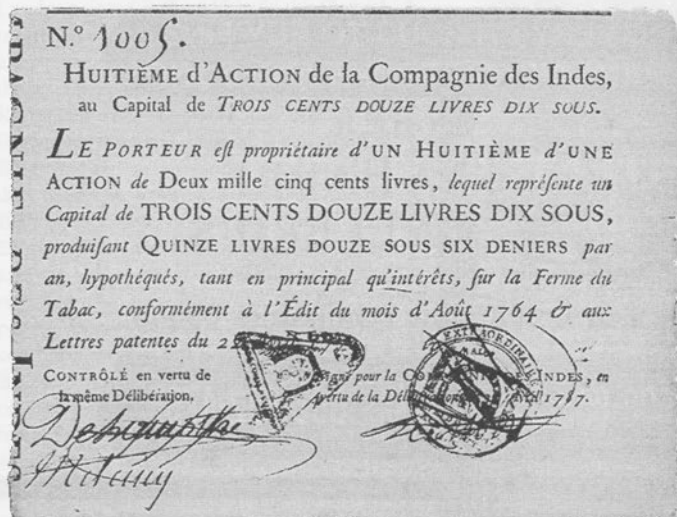 N.º 1005.
HUITIÈME d'ACTION de la Compagnie des Indes,
au Capital de TROIS CENTS DOUZE LIVRES DIX SOUS.
LE PORTEUR eſt propriétaire d'UN HUITIÈME d'UNE
ACTION de Deux mille cinq cents livres, lequel repréſente un
Capital de TROIS CENTS DOUZE LIVRES DIX SOUS,
produiſant QUINZE LIVRES DOUZE SOUS SIX DENIERS par
an, hypothéqués, tant en principal qu'intérêts, ſur la Ferme du
Tabac, conformément à l'Édit du mois d'Août 1764 & aux
Lettres patentes du
CONTRÔLÉ en vertu de
la même Délibération.
Signé pour la COMPAGNIE DES INDES, en
vertu de la Délibération 1787.
EXTRAORDINAIRE